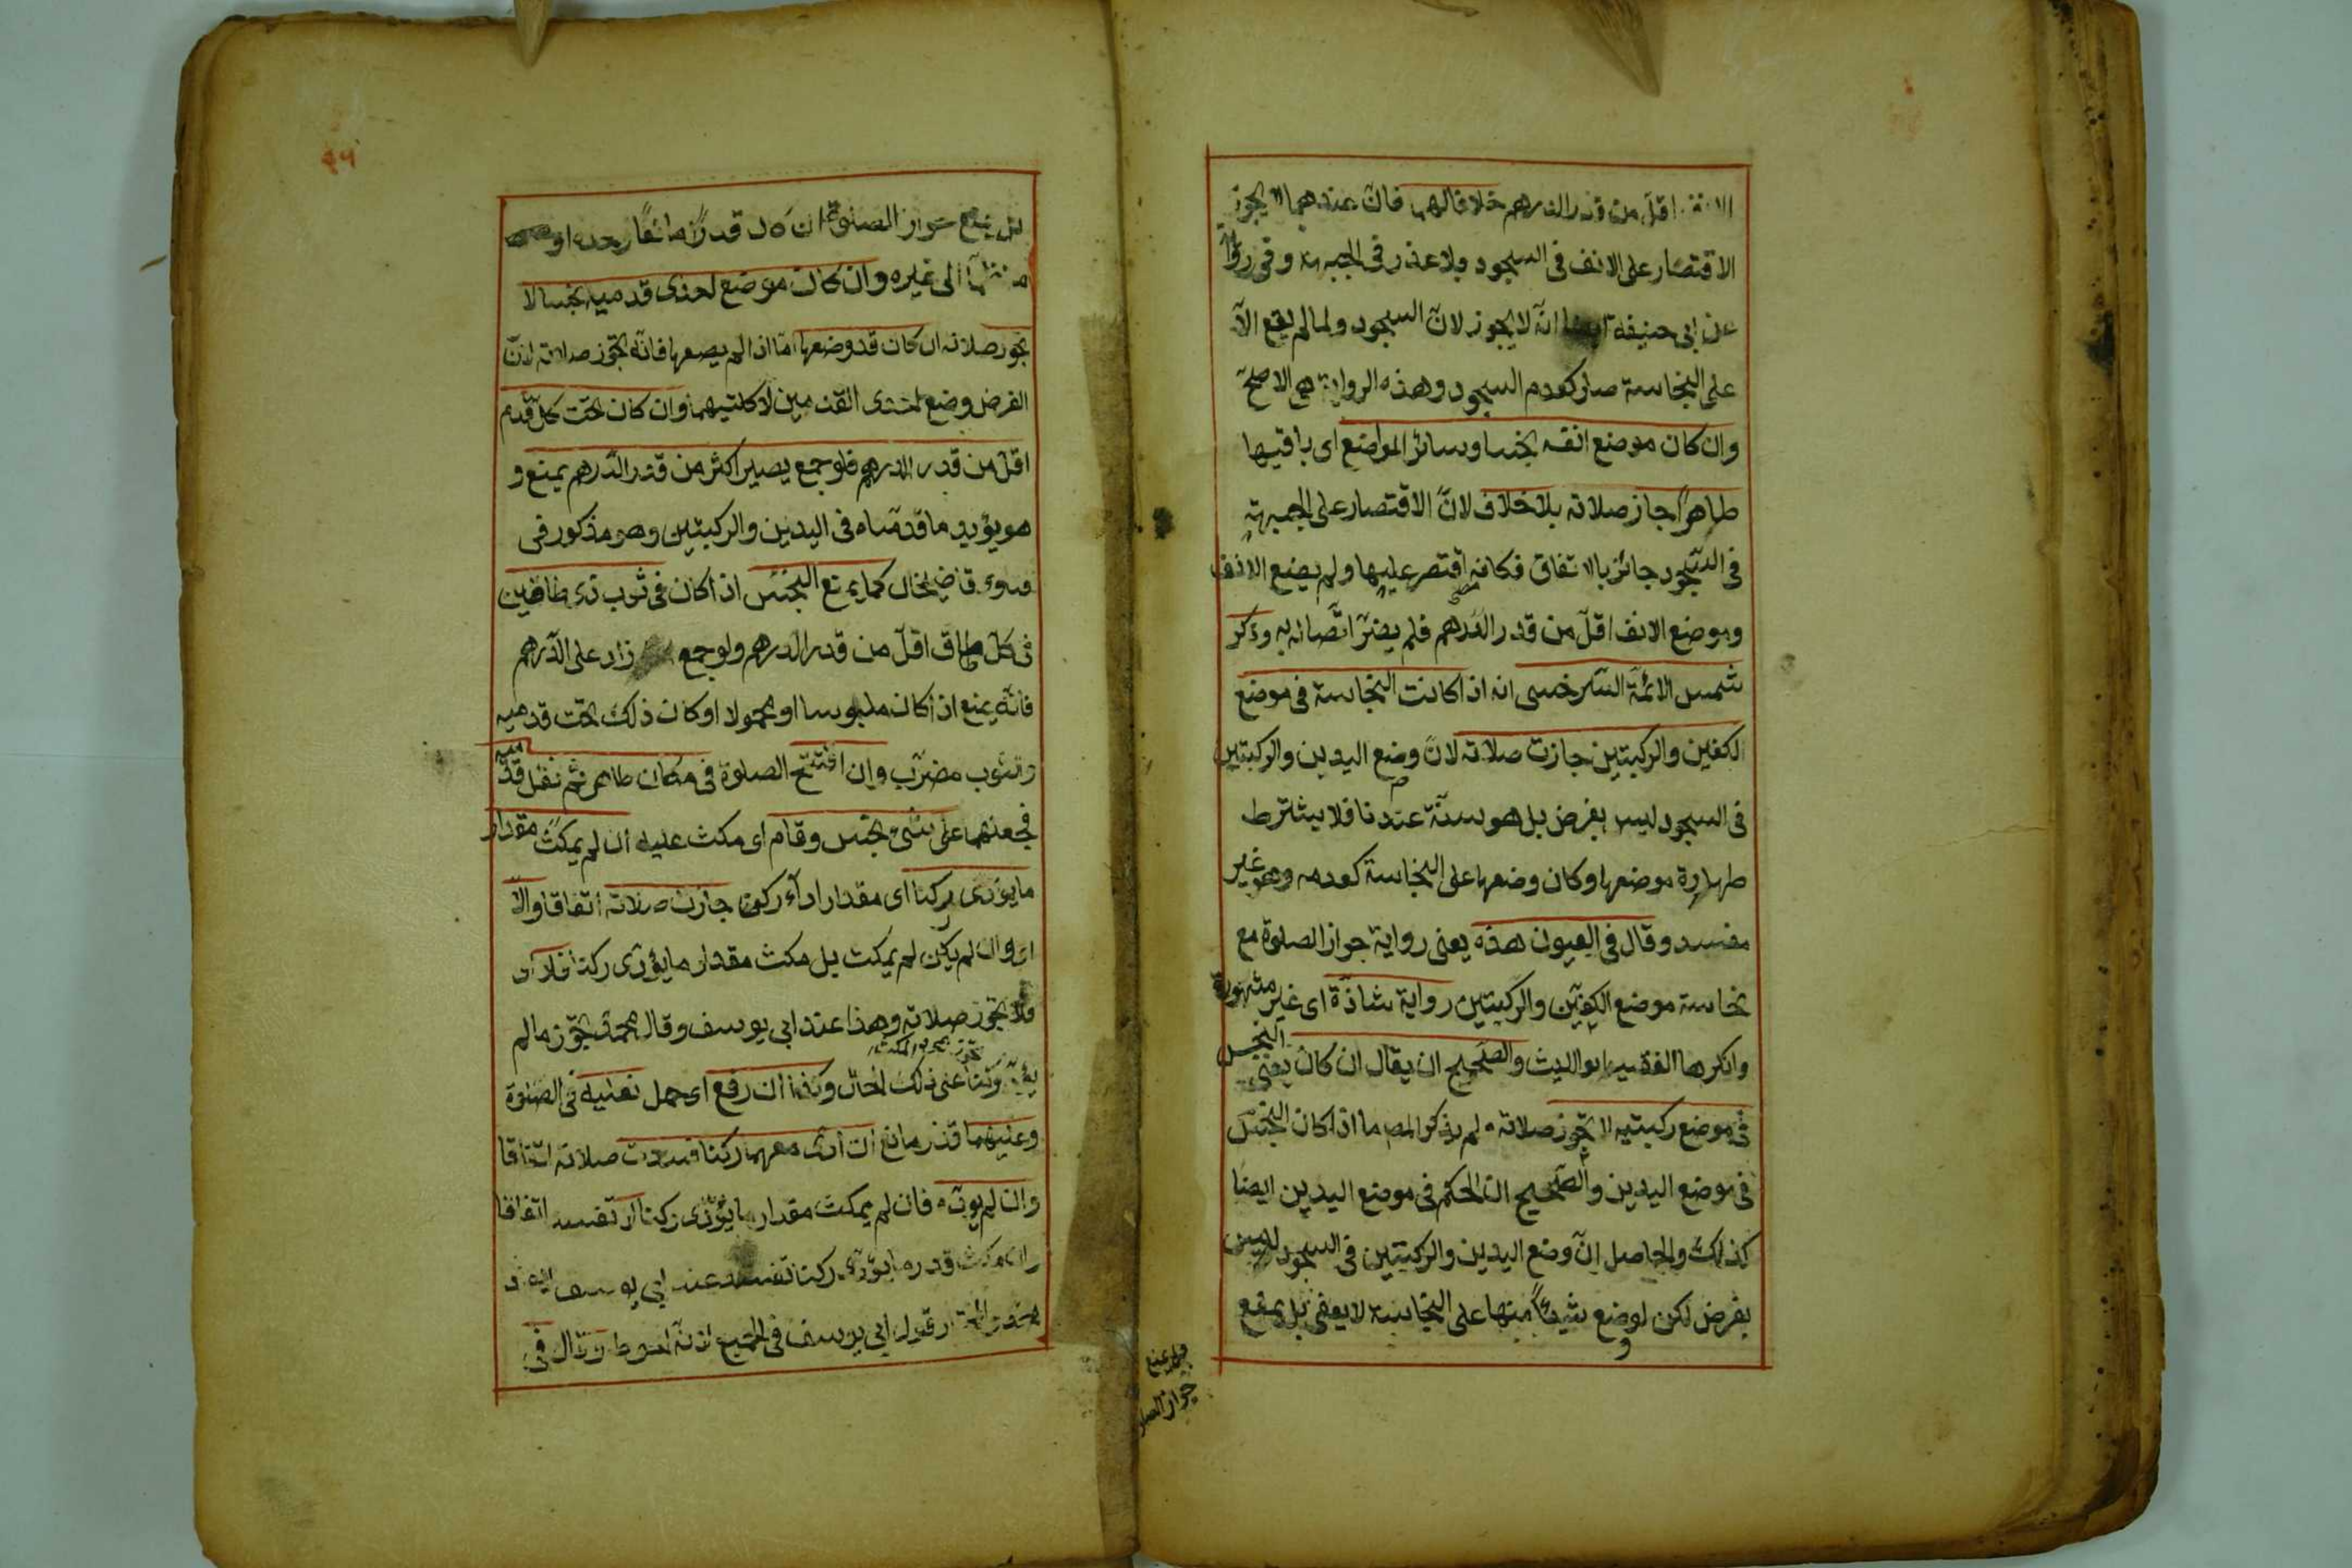 الانف اقل من قدر الدرهم خلافا لهما فان عندهما لا يجوز
الاقتصار على الانف فى السجود بلا عذر فى الجبهة وفى رواية
عن ابى حنيفة ايضا انه لا يجوز لان السجود لما لم يقع الا
على النجاسة صار كعدم السجود وهذه الرواية هى الاصح
وان كان موضع انفه نجسا وسائر المواضع اى باقيها
طاهرا جاز صلاته بلا خلاف لان الاقتصار على الجبهة
فى السجود جائز بالاتفاق فكانه اقتصر عليها ولم يضع الانف
وموضع الانف اقل من قدر الدرهم فلم يضر اتصاله به وذكر
شمس الائمة السرخسى انه اذا كانت النجاسة فى موضع
الكفين والركبتين جازت صلاته لان وضع اليدين والركبتين
فى السجود ليس بفرض بل هو سنة عندنا فلا يشترط
طهارة موضعها وكان وضعها على النجاسة كعدمه وهو غير
مفسد وقال فى العيون هذه يعنى رواية جواز الصلوة مع
نجاسة موضع الكفين والركبتين رواية شاذة اى غير مشهورة
وانكرها الفقيه ابو الليث والصحيح ان يقال ان كان يعنى النجس
فى موضع ركبتيه لا تجوز صلاته ولم يذكر المص ما اذا كان النجس
فى موضع اليدين والصحيح ان الحكم فى موضع اليدين ايضا
كذلك والحاصل ان وضع اليدين والركبتين فى السجود ليس
بفرض لكن لو وضع شيئا منها على النجاسة لا يعفى بل يمنع
جواز الصلو
بل يمنع جواز الصلوة ان كان قدرا مانعا وحده او
منضما الى غيره وان كان موضع احدى قدميه نجسا لا
تجوز صلاته ان كان قد وضعها اما اذا لم يضعها فانه تجوز صلاته لان
الفرض وضع احدى القدمين لا كلتيهما وان كان تحت كل قدم
اقل من قدر الدرهم فلو جمع يصير اكثر من قدر الدرهم يمنع و
هو يؤيد ما قدمناه فى اليدين والركبتين وهو مذكور فى
فتاوى قاضيخان كما يمنع النجس اذا كان فى ثوب ذى طاقين
فى كل طاق اقل من قدر الدرهم ولو جمع زاد على الدرهم
فانه يمنع اذا كان ملبوسا او محمولا او كان ذلك تحت قدميه
وثوب مضرب وان افتتح الصلوة فى مكان طاهر ثم نقل قدميه
فجعلهما على شىء نجس وقام اى مكث عليه ان لم يمكث مقدار
ما يؤدى ركنا اى مقدار اداء ركن جازت صلاته اتفاقا والا
اى وان لم يكن لم يمكث بل مكث مقدار ما يؤدى ركنا فلا اى
فلا تجوز صلاته وهذا عند ابى يوسف وقال محمد تجوز ما لم
يؤد ركنا على ذلك الحال وكذا ان رفع اى حمل نعليه فى الصلوة
وعليهما قذر مانع ان ادى معهما ركنا فسدت صلاته اتفاقا
وان لم يؤده فان لم يمكث مقدار ما يؤدى ركنا لا تفسد اتفاقا
وان مكث قدر ما يؤدى ركنا تفسد عند ابى يوسف
قول ابى يوسف فى الجميع لانه احوط وقال فى